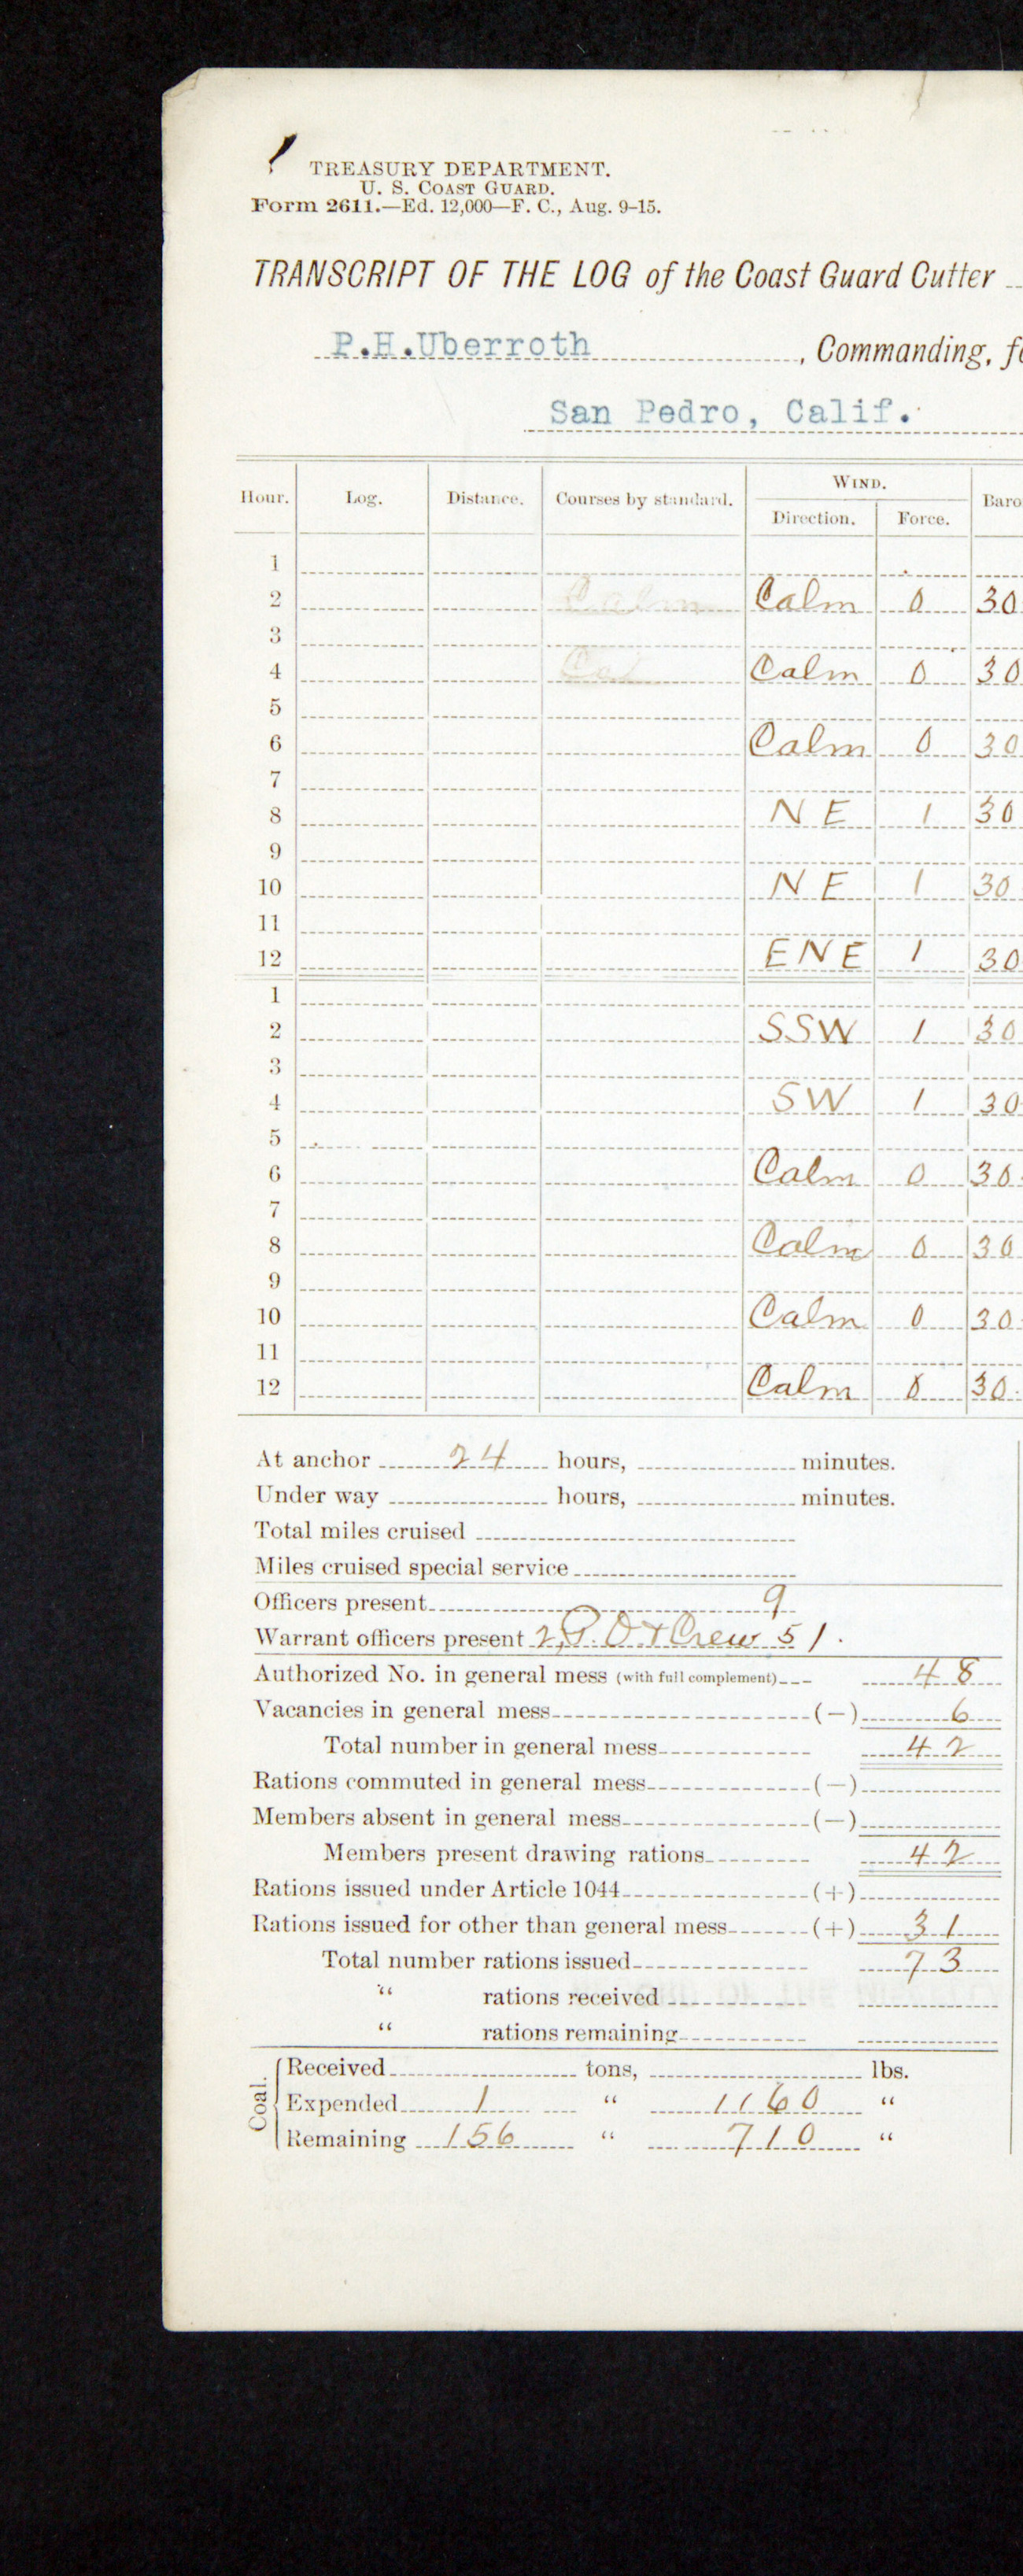 TREASURY DEPARTMENT.
U. S. COAST GUARD.
Form 2611.—Ed. 12,000—F. C., Aug. 9-15.
TRANSCRIPT OF THE LOG of the Coast Guard Cutter
P.H.Uberroth, Commanding, fo
San Pedro, Calif.
Hour. Log. Distance. Courses by standard. WIND. Baro
Direction. Force.
1
2 Calm Calm 0 30
3
4 Cal Calm 0 30
5
6 Calm 0 30
7
8 NE 1 30
9
10 NE 1 30
11
12 ENE 1 30
1
2 SSW 1 30
3
4 SW 1 30
5
6 Calm 0 30.
7
8 Calm 0 30
9
10 Calm 0 30
11
12 Calm 0 30.
At anchor 24 hours, minutes.
Under way hours, minutes.
Total miles cruised
Miles cruised special service
Officers present 9
Warrant officers present 2, P.O + Crew 51.
Authorized No. in general mess (with full complement) 48
Vacancies in general mess (—) 6
Total number in general mess 42
Rations commuted in general mess (—)
Members absent in general mess (—)
Members present drawing rations 42
Rations issued under Article 1044 (+)
Rations issued for other than general mess (+) 31
Total number rations issued 73
“ rations received
“ rations remaining
Coal. Received tons, lbs.
Expended 1 “ 1160 “
Remaining 156 “ 710 “